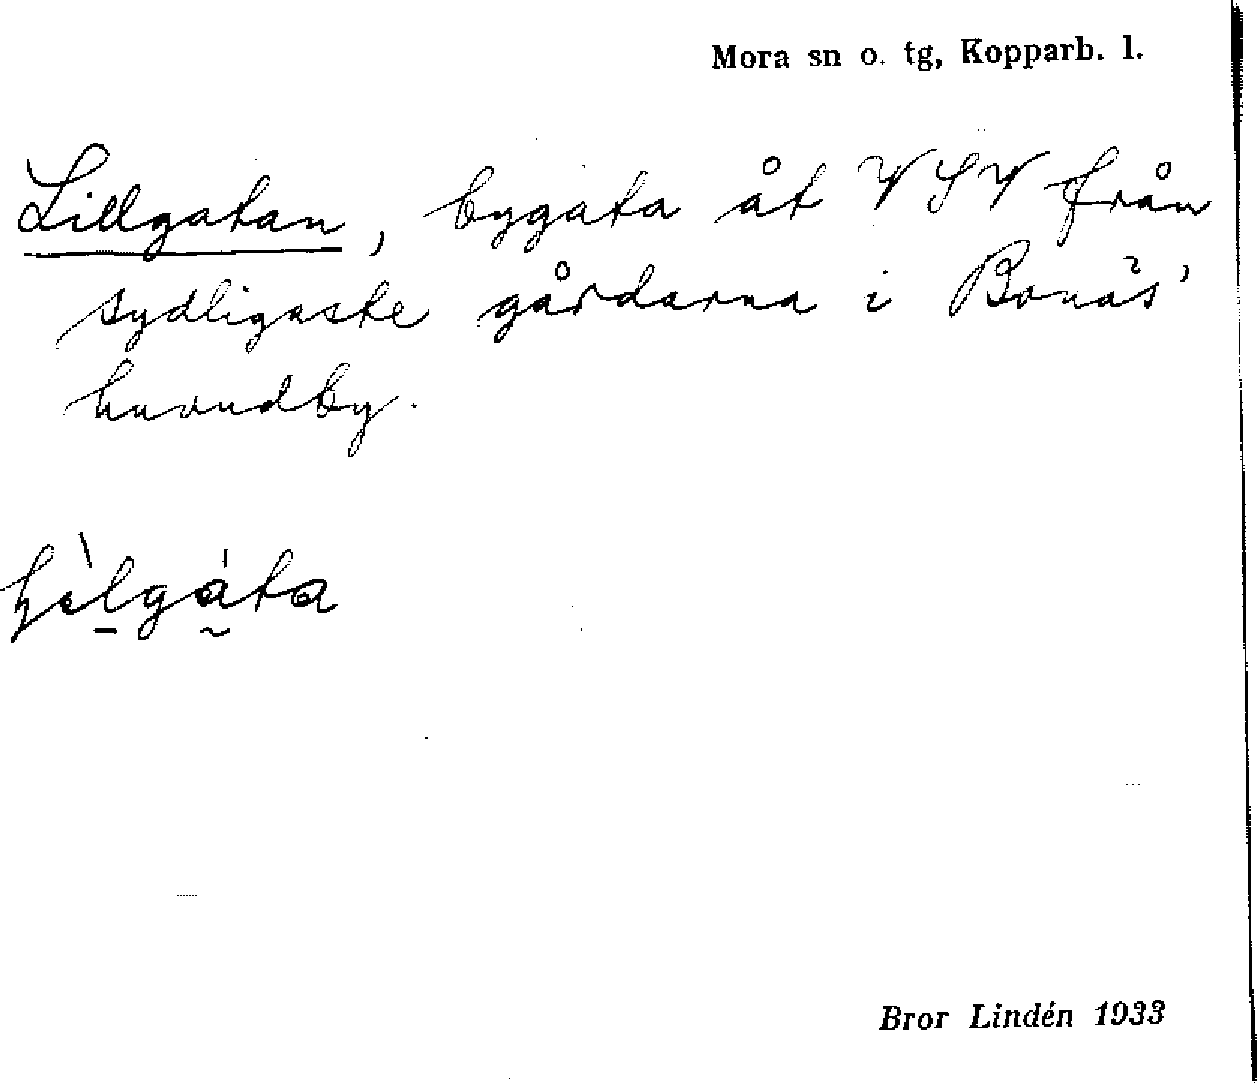 Mora sn o. tg, Kopparb. l.
Lillgatan, bygata åt VSV från
sydligaste gårdarna i Bonäs'
huvudby.
Bror Lindén 1933